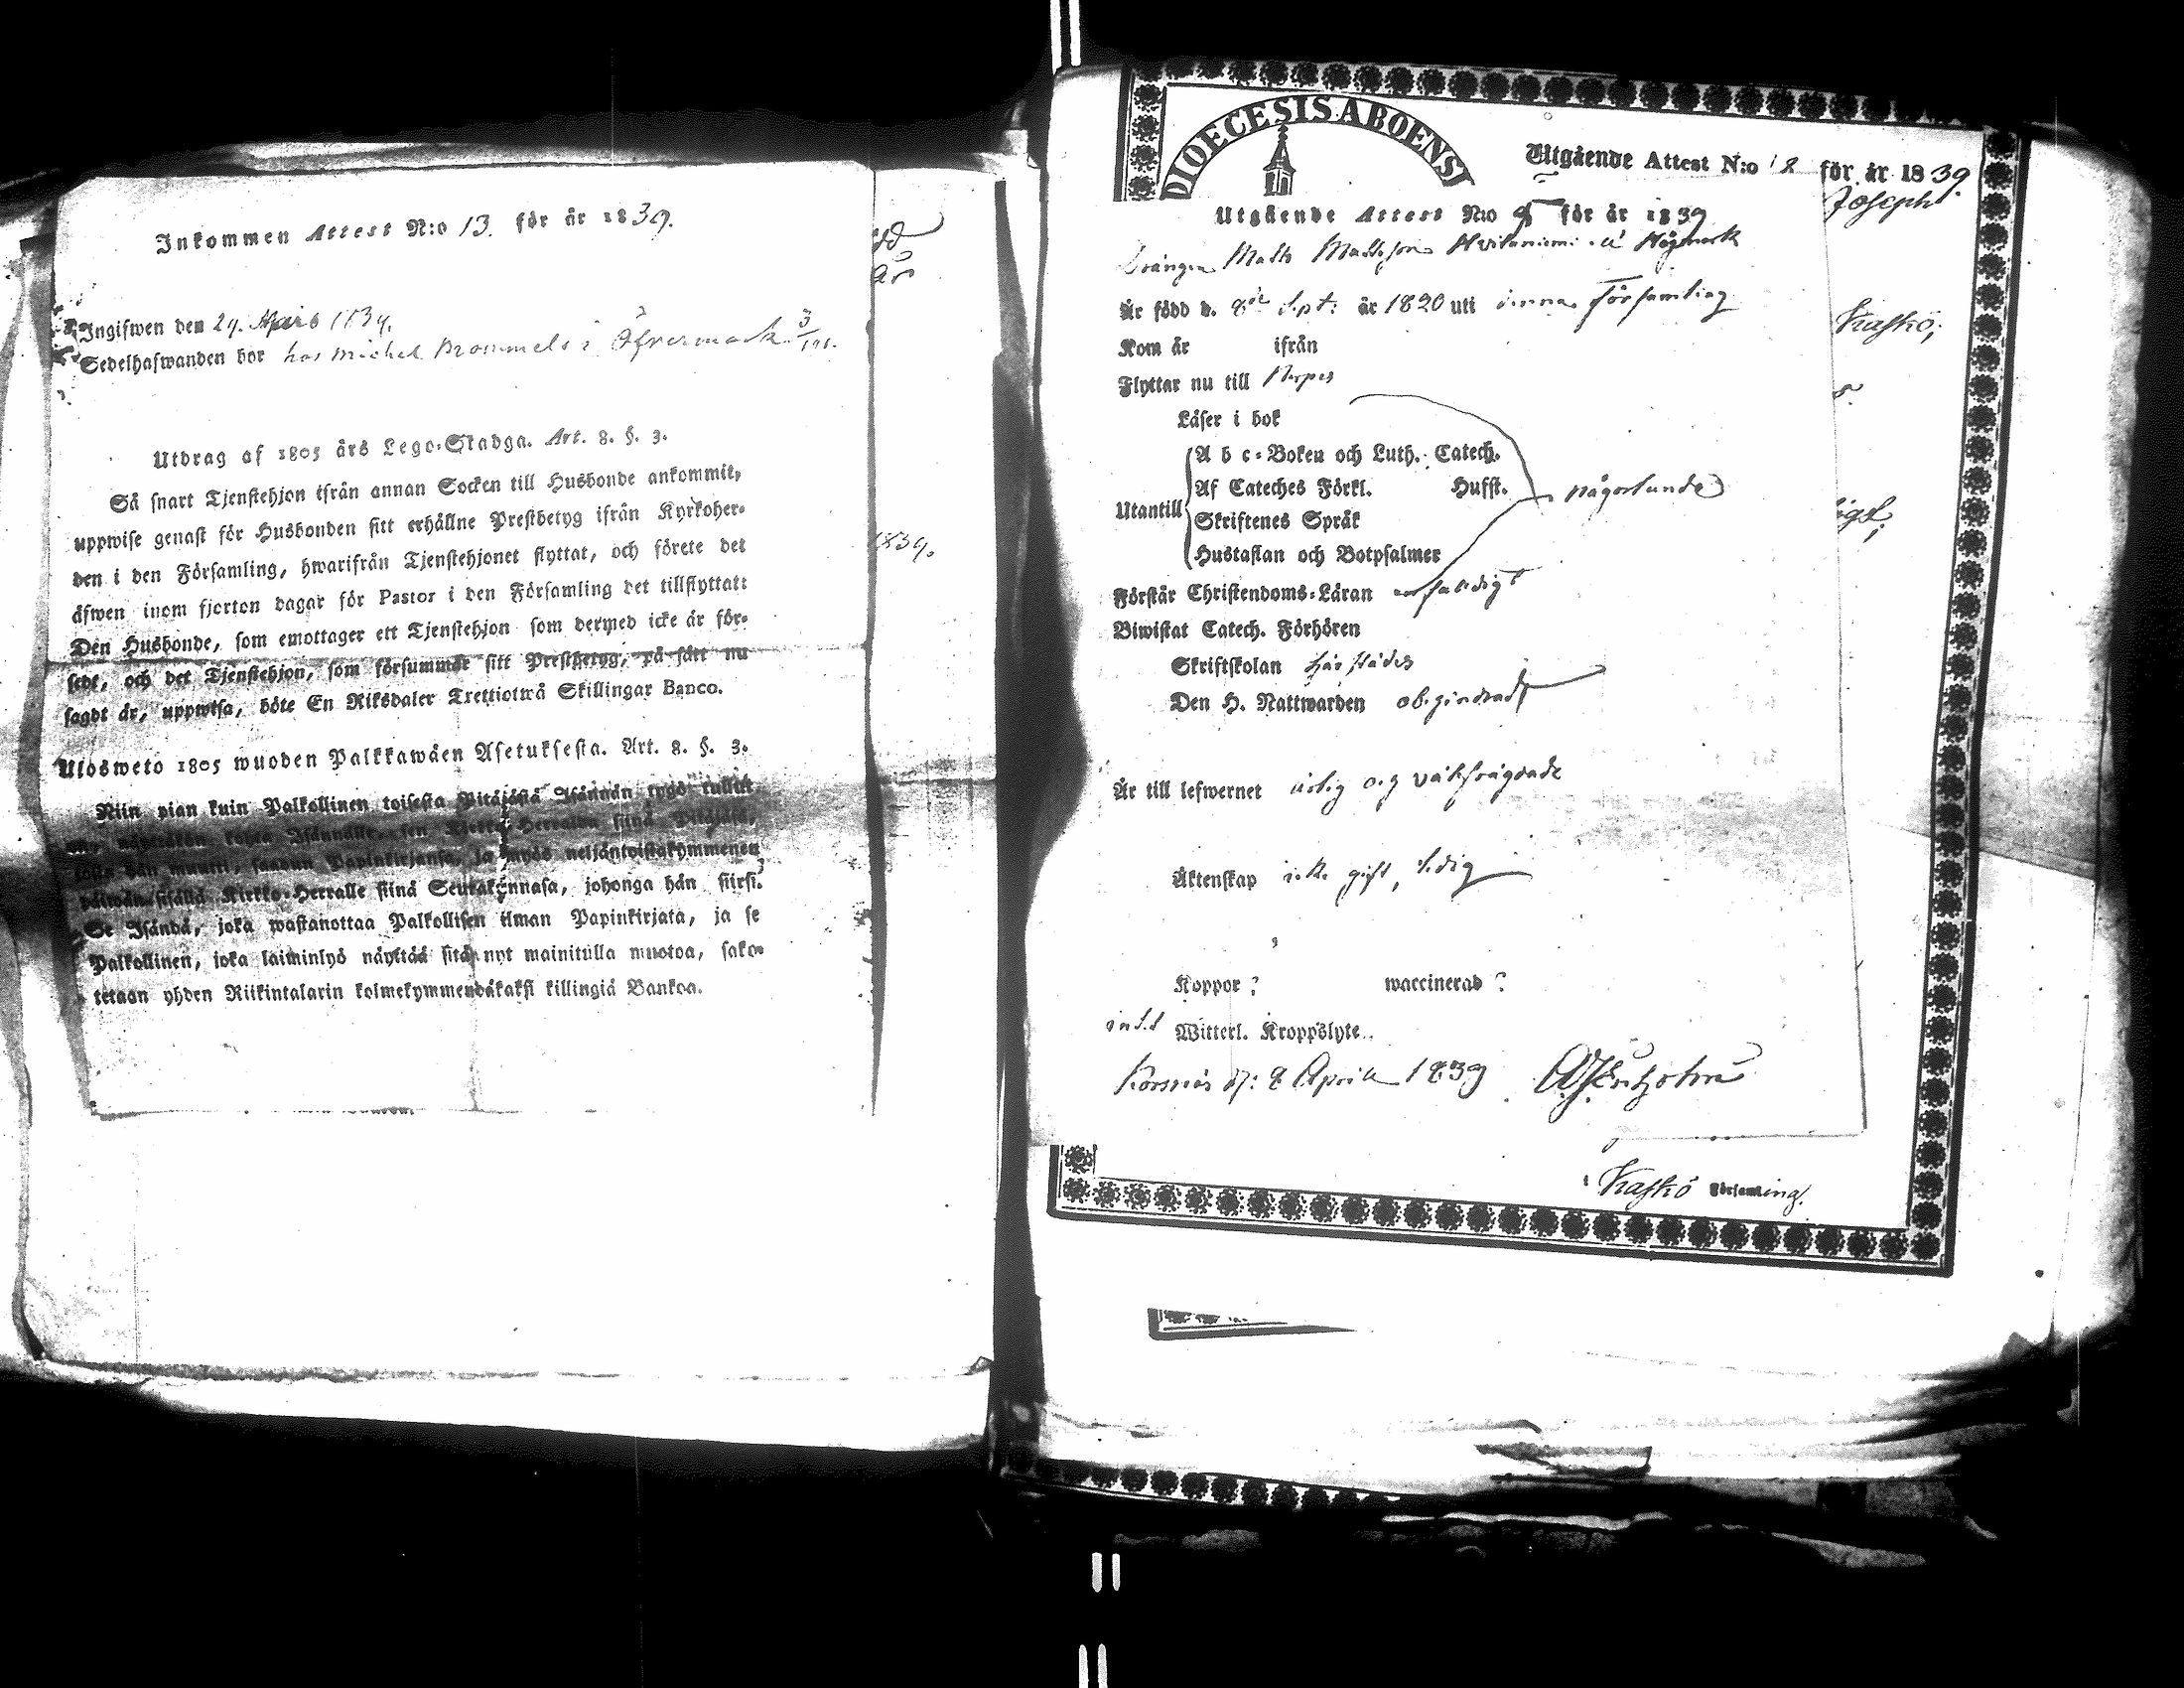 Inkommen Attest N:o 13. för år 1839.
Ingifwen den 29. 1839.
Sedelhafwanden bor hos Michel Brommels i Öfvermark 3/101.
Utdrag af 1805 års Lego-Stadga. Art. 8. §. 3.
Så snart Tjenstehjon ifrån annan Socken till Husbonde ankommit,
uppwise genast för Husbonden sitt erhållne Prestbetyg ifrån Kyrkoher-
den i den Församling, hwarifrån Tjenstehjonet flyttat, och förete det
äfwen inom fjorton dagar för Pastor i den Församling det tillflyttat:
Den Husbonde, som emottager ett Tjenstehjon som dermed icke är för-
sedt, och det Tjenstehjon, som försummar sitt Prestbetyg, på sätt nu
sagdt är, uppwisa, böte En Riksdaler Trettiotwå Skillingar Banco.
Ulosweto 1805 wuoden Palkkawäen Asetuksesta. Art. 8. §. 3.
Niin pian kuin Palkollinen toisesta Pitäjästä Isännän tygö tullut
on, näyttäkön kohta Isännälle, sen Kirkko-Herralda siinä Pitäjäsä,
josta hän muutti, saadun Papinkirjansa, ja myös neljäntoistakymmenen
päiwän sisällä Kirkko-Herralle siinä Seurakunnasa, johonga hän siirsi.
Se Isändä, joka wastanottaa Palkollisen ilman Papinkirjata, ja se
Palkollinen, joka laiminlyö näyttää sitä nyt mainitulla muotoa, sako-
tetaan yhden Riikintalarin kolmekymmendäkaksi killingiä Bankoa.
år
1839.
DIOECESIS ABOENSI
Utgående Attest N:o 12 för år 1839.
Joseph
Utgående Attest N:o för år 1839
Drängen Matts Mattsson å Högmark
Är född d. 8de Sept: år 1820 uti denna Församling
Kaskö,
Kom år ifrån
Flyttar nu till Nerpes
Läser i bok
A b c-Boken och Luth. Catech.
Af Cateches Förkl. Hufst.
någorlunda
Utantill
Skriftenes Språk
Hustaflan och Botpsalmer
Förstår Christendoms-Läran enfaldigt
Biwistat Catech. Förhören
Skriftskolan härstädes
Den H. Nattwarden obehindrad
Är till lefwernet ärlig och välfrägdade
Äktenskap icke gift, ledig
Koppor? waccinerad?
intet Witterl. Kroppslyte.
Korsnäs d: 8 April 1839
Kaskö Församling.